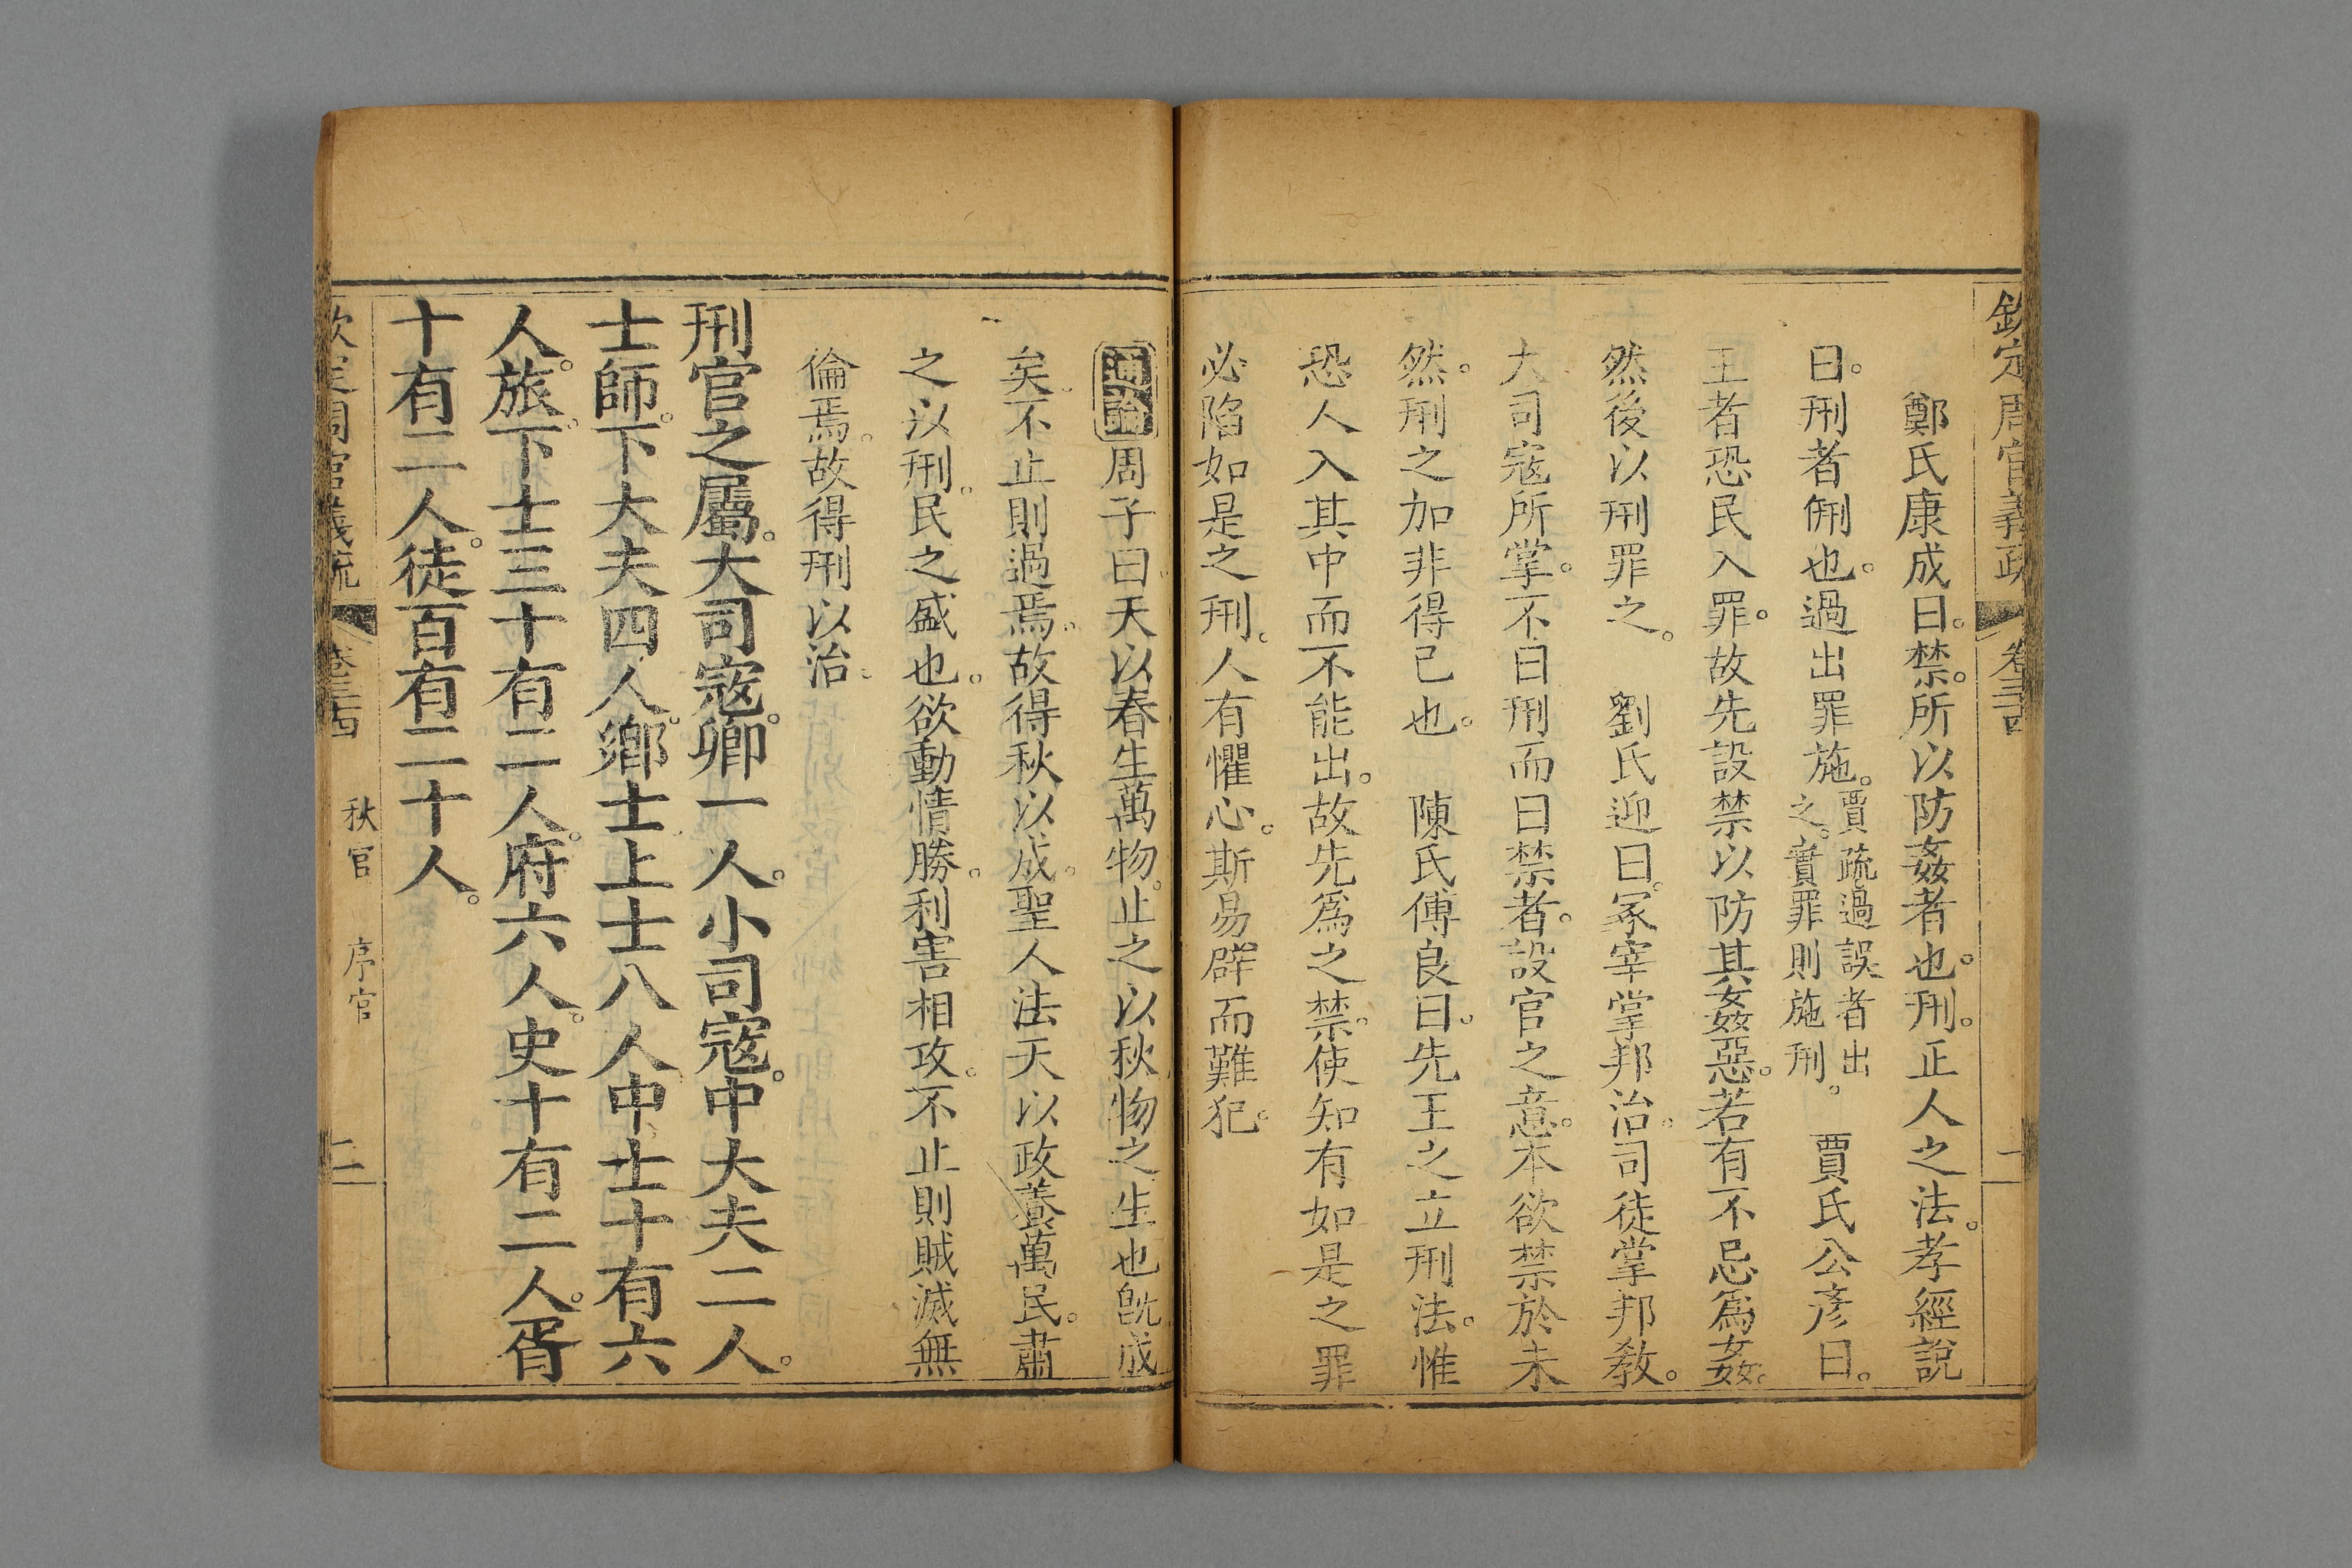 欽定周官義疏 卷三十四 一
鄭氏康成曰。禁。所以防姦者也。刑。正人之法。孝經說
曰。刑者侀也。過出罪施。賈疏。過誤者出之。實罪則施刑。 賈氏公彥曰。
王者恐民入罪。故先設禁以防其姦惡。若有不忌爲姦。
然後以刑罪之。 劉氏迎曰。冢宰掌邦治。司徒掌邦敎。
大司寇所掌。不曰刑而曰禁者。設官之意。本欲禁於未
然。刑之加非得已也。 陳氏傅良曰。先王之立刑法。惟
恐人入其中而不能出。故先爲之禁。使知有如是之罪
必陷如是之刑。人有懼心。斯易辟而難犯。
通論 周子曰。天以春生萬物。止之以秋。物之生也旣成
矣。不止則過焉。故得秋以成。聖人法天以政養萬民。肅
之以刑。民之盛也。欲動情勝。利害相攻。不止則賊滅無
倫焉。故得刑以治。
刑官之屬。大司寇。卿一人。小司寇。中大夫二人。
士師。下大夫四人。鄉士上士八人。中士十有六
人。旅。下士三十有二人。府六人。史十有二人。胥
十有二人。徒百有二十人。
欽定周官義疏 卷三十四 秋官 序官 二